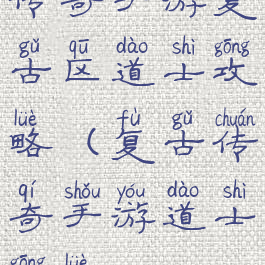 传奇手游复
gǔ qū dào shì gōng
古区道士攻
lüè fù gǔ chuán
略（复古传
qí shǒu yóu dào shì
奇手游道士
gōng lüè